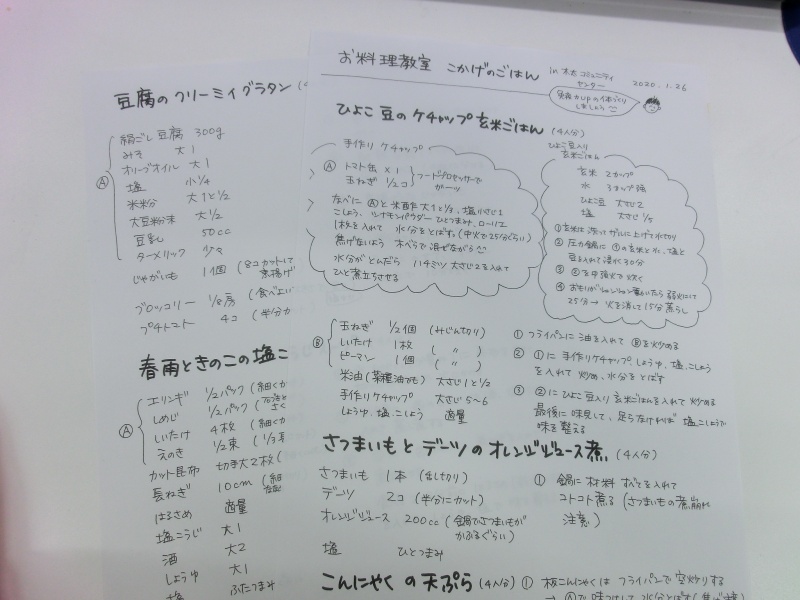 お料理教室 こかげのごはん in 木太コミュニティセンター 2020.1.26
免疫力upの体づくりしましょう
ひよこ豆のケチャップ玄米ごはん (4人分)
手作りケチャップ
Ⓐ トマト缶 ×1
玉ねぎ 1/2コ
フードプロセッサーでがーッ
なべに Ⓐと米酢大1と1/2, 塩小さじ1
こしょう、シナモンパウダーひとつまみ、ローリエ
1枚を入れて 水分をとばす。(中火で25分ぐらい)
焦げないよう 木べらで混ぜながら
水分がとんだら ハチミツ大さじ2を入れて
ひと煮立ちさせる
ひよこ豆入り
玄米ごはん
玄米 2カップ
水 3カップ強
ひよこ豆 大さじ2
塩 大さじ1/5
①玄米は洗ってザルに上げて水切り
② 圧力鍋に①の玄米と水、塩と
豆を入れて浸水30分
③ ②を中強火で炊く
④ おもりがシュンシュン動いたら弱火にして
25分→火を消して15分蒸らし
Ⓑ 玉ねぎ 1/2個 (みじん切り)
しいたけ 1枚 ( 〃 )
ピーマン 1個 ( 〃 )
米油(菜種油でも) 大さじ1と1/2
手作りケチャップ 大さじ5~6
しょうゆ、塩、こしょう 適量
① フライパンに油を入れて Ⓑを炒める
② ①に手作りケチャップ、しょうゆ、塩、こしょう
を入れて炒め、水分をとばす
③ ②にひよこ豆入り玄米ごはんを入れて炒める
最後に味見して、足らなければ 塩こしょうで
味を整える
さつまいもとデーツのオレンジジュース煮 (4人分)
さつまいも 1本 (乱切り)
デーツ 2コ (半分にカット)
オレンジジュース 200cc (鍋でさつまいもが
かぶるぐらい)
塩 ひとつまみ
① 鍋に材料すべてを入れて
コトコト煮る (さつまいもの煮崩れ
注意)
こんにゃくの天ぷら (4人分) ① 板こんにゃくはフライパンで空炒りする
豆腐のクリーミィグラタン
Ⓐ 絹ごし豆腐 300g
みそ 大1
オリーブオイル 大1
塩 小1/4
米粉 大1と1/2
大豆粉末 大1/2
豆乳 50cc
ターメリック 少々
じゃがいも 1個 (8コカットして
素揚げ
ブロッコリー 1/8房 (食べよい
プチトマト 4コ (半分カ
春雨ときのこの塩こ
Ⓐ エリンギ 1/2パック (細くか
しめじ 1/2パック
しいたけ 4枚 (細くか
えのき 1/2束 (1/3
カット昆布 切手大2枚 (
長ねぎ 10cm (細
はるさめ 適量
塩こうじ 大1
酒 大2
しょうゆ 大1
塩 ふたつまみ